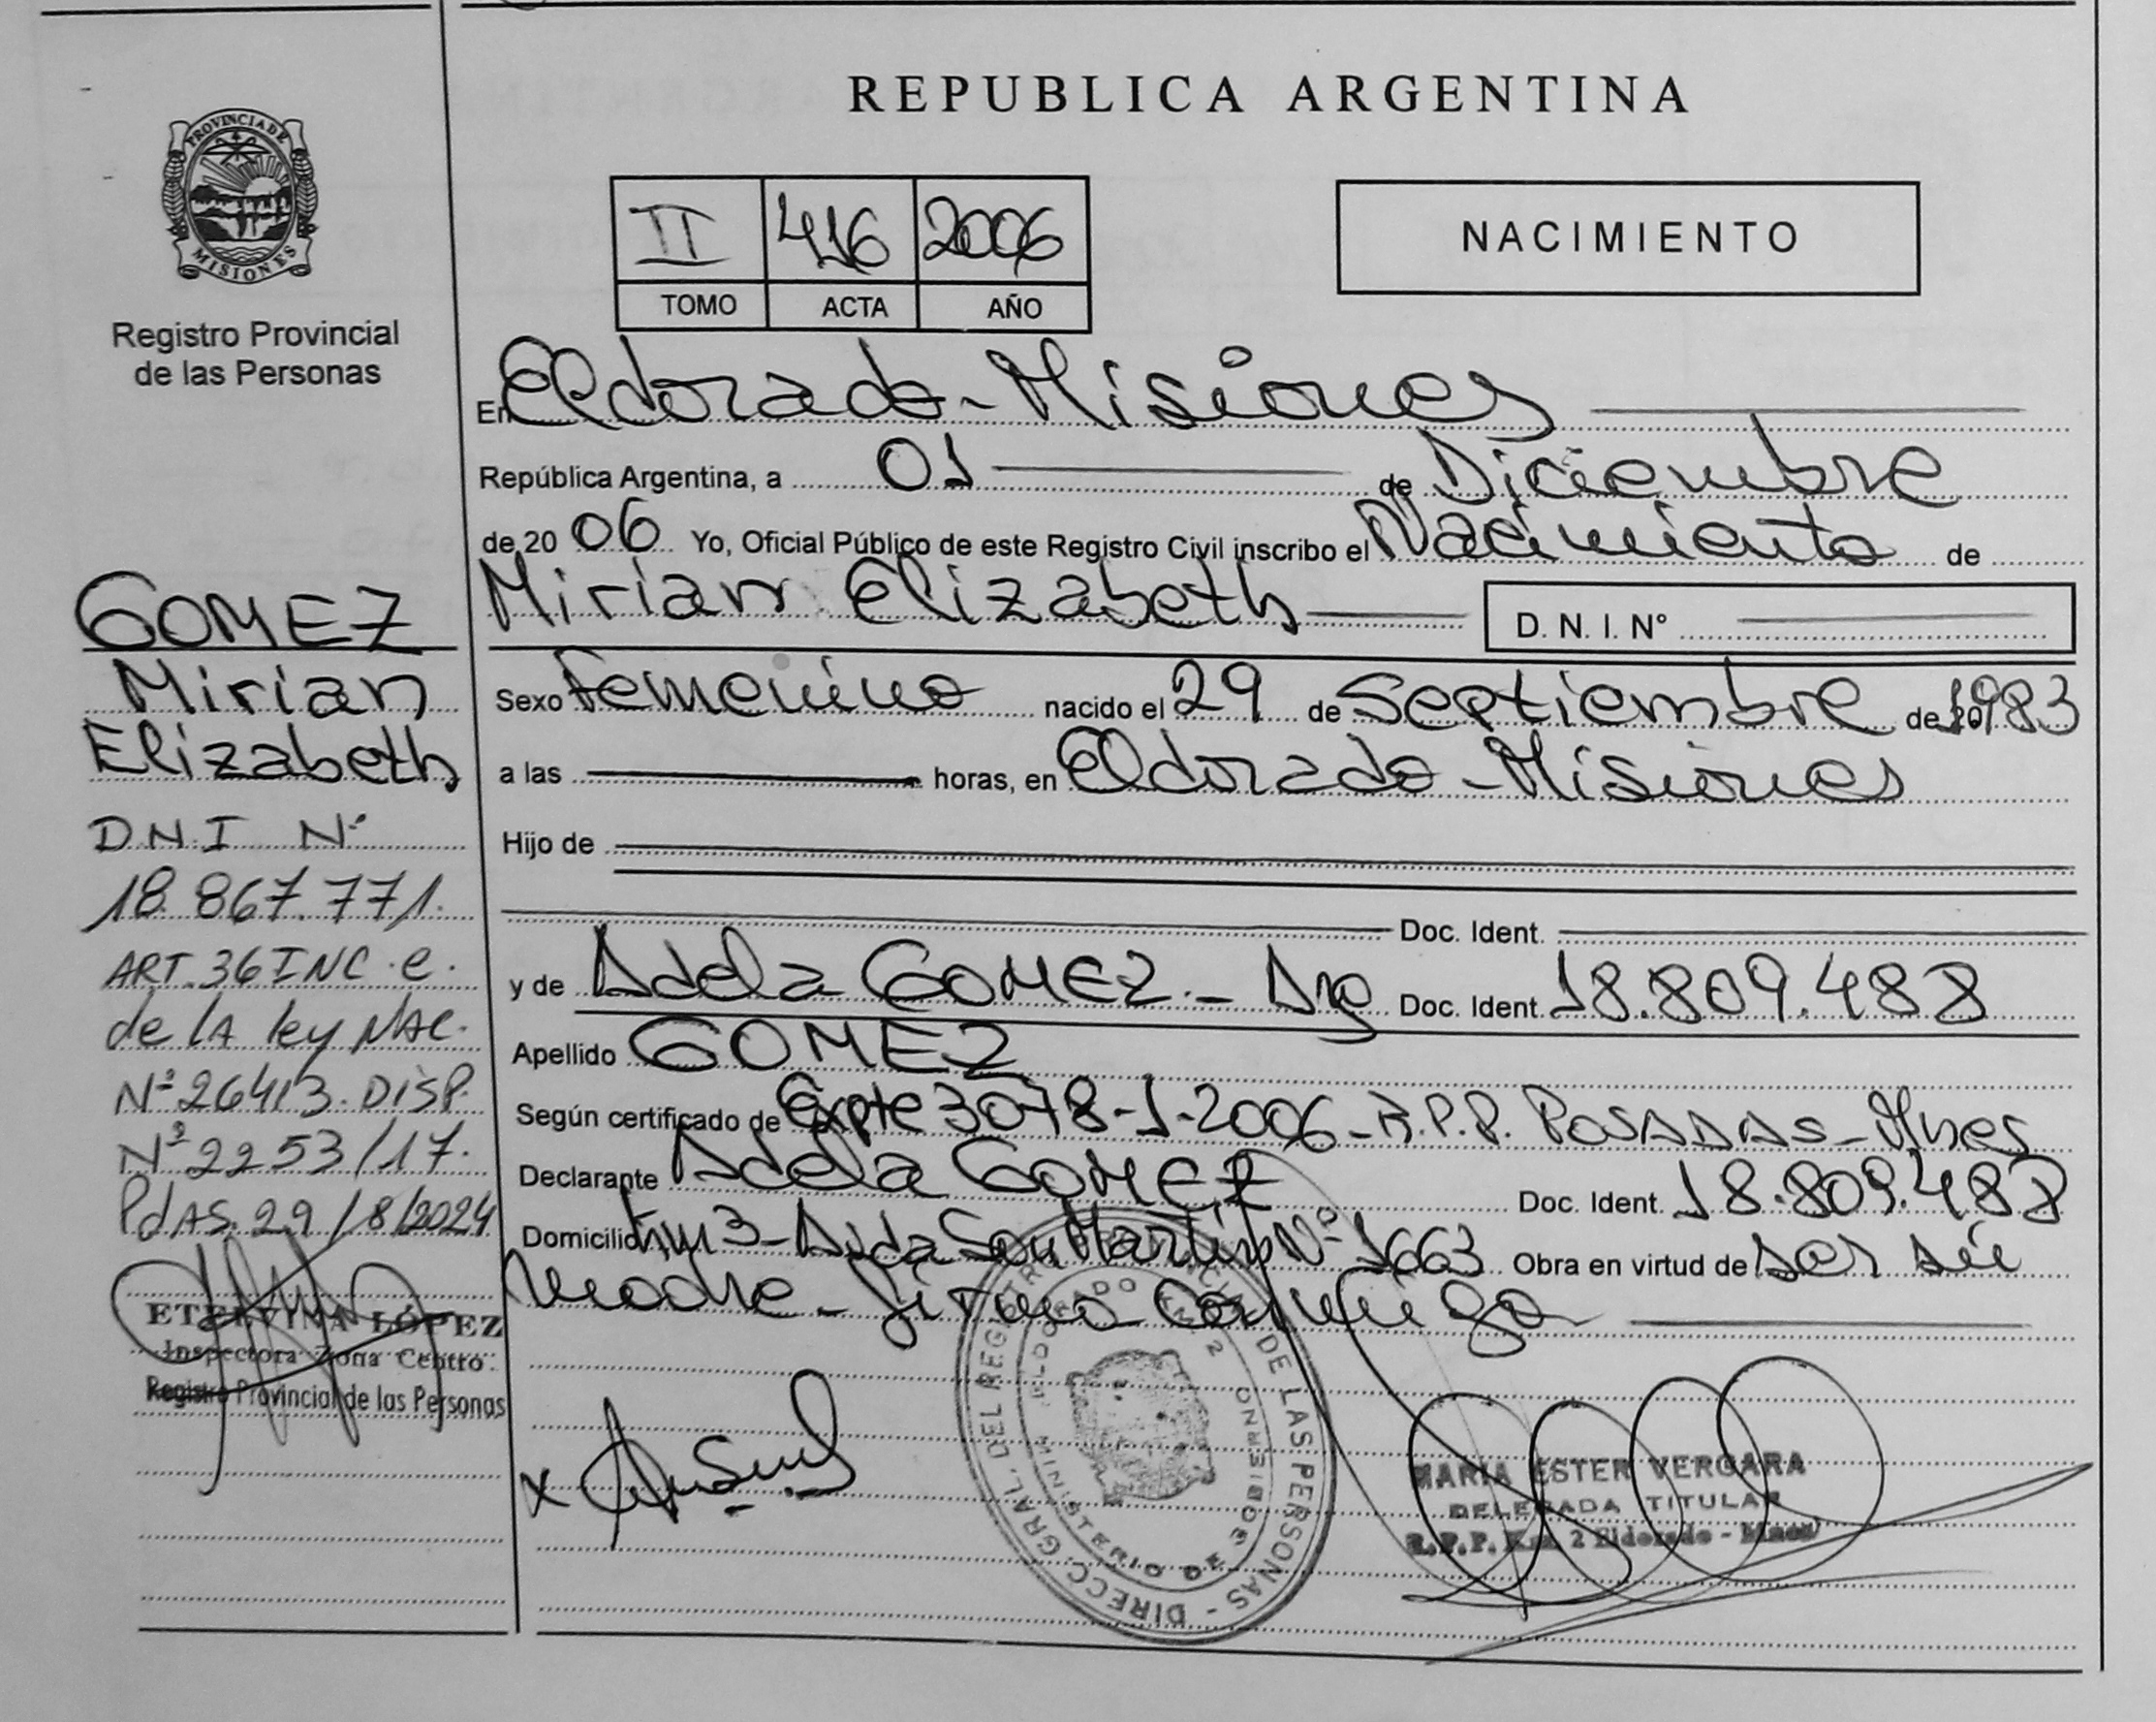 REPUBLICA ARGENTINA
PROVINCIA DE
MISIONES
Registro Provincial
de las Personas
II 416 2006
TOMO ACTA AÑO
NACIMIENTO
En Eldorado - Misiones
República Argentina, a 01 de Diciembre
de 20 06 Yo, Oficial Público de este Registro Civil inscribo el Nacimiento de
Mirian Elizabeth D. N. I. Nº
Sexo Femenino nacido el 29 de Septiembre de 1983
a las horas, en Eldorado - Misiones
Hijo de
Doc. Ident.
y de Adela GOMEZ.- Arg Doc. Ident. 18.809.488
Apellido GOMEZ
Según certificado de Expte 3078-J-2006-R.P.P. POSADAS-Mnes
Declarante Adela GOMEZ Doc. Ident. 18.809.488
Domicilio Km 3-Avda San Martin Nº 1663 Obra en virtud de ser su
madre - Firma conmigo
GOMEZ
Mirian
Elizabeth
D.N.I Nº
18.867.771.
ART.36 INC.e.
de lA ley NAC.
Nº 26413. DISP.
Nº 2253/17.
PdAS. 29/8/2024
ETELVINA LÓPEZ
Inspectora Zona Centro
Registro Provincial de las Personas
X
DIRECC. GRAL. DEL REGISTRO DE LAS PERSONAS -
MINISTERIO DE GOBIERNO
ELDORADO KM. 2
MARIA ESTER VERGARA
DELEGADA TITULAR
R.P.P. Km 2 Eldorado - Mnes